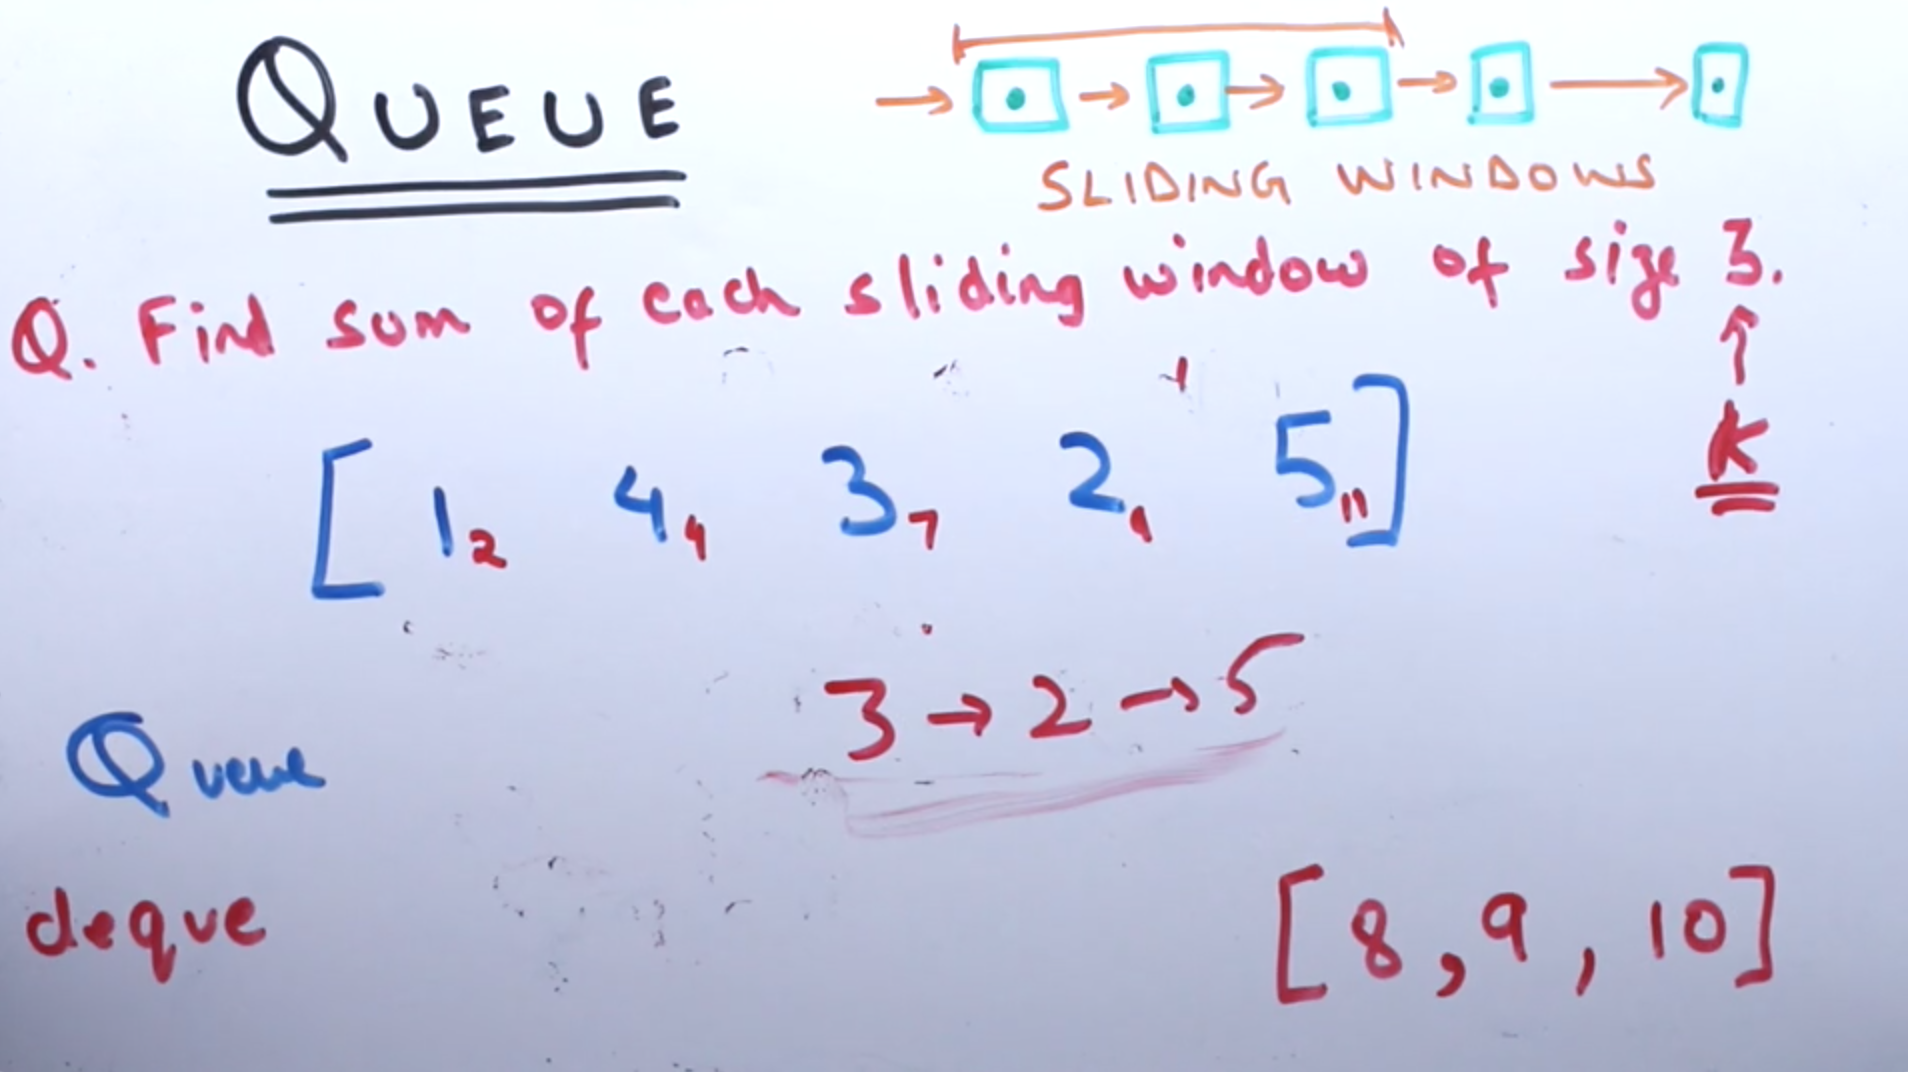 QUEUE
SLIDING WINDOWS
Q. Find sum of each sliding window of size 3.
K
[ 1 2 4 4 3 7 2 5 11 ]
3 → 2 → 5
Queue
deque
[ 8 , 9 , 10 ]